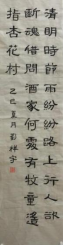 清明時節雨紛紛路上行人欲
斷魂借問酒家何處有牧童遙
指杏花村 乙巳夏月